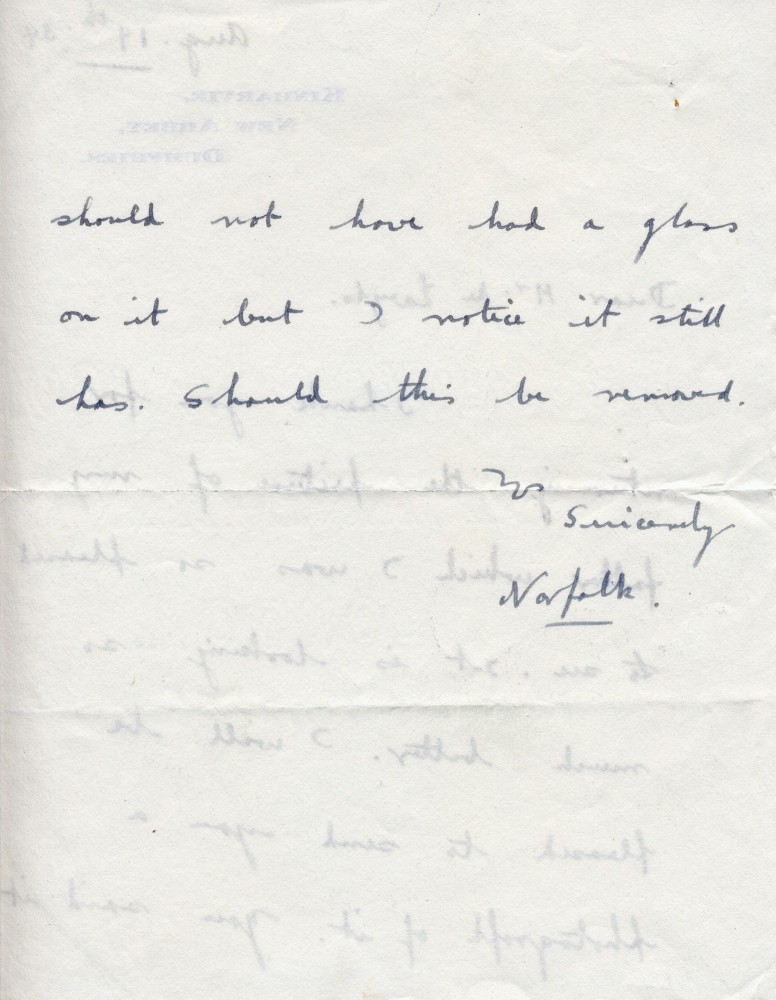 should not have had a glass
on it but I notice it still
has. Should this be removed.
Yrs
Sincerely
Norfolk.